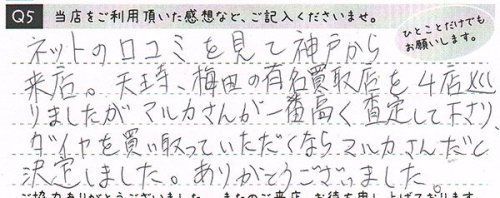 Q5 当店をご利用頂いた感想など、ご記入くださいませ。
ひとことだけでも
お願いします。
ネットの口コミを見て神戸から
来店。天王寺、梅田の有名買取店を4店
りましたがマルカさんが一番高く査定して下さり、
ダイヤを買い取っていただくならマルカさんだと
決定しました。ありがとうございました。
ご協力ありがとうございました。またのご来店、お待ち申し上げております。